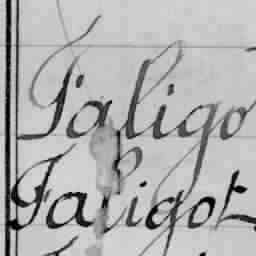 Faligo
Faligot